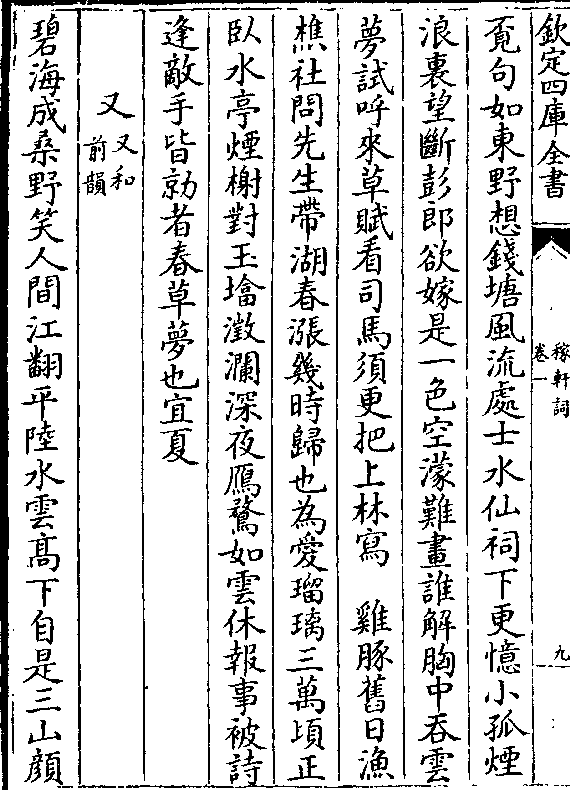 欽定四庫全書
稼軒詞
卷一
九
覔句如東野想錢塘風流處士水仙祠下更憶小孤煙
浪裏望斷彭郎欲嫁是一色空濛難畫誰解胸中吞雲
夢試呼來草賦看司馬須更把上林寫　雞豚舊日漁
樵社問先生帶湖春漲幾時歸也為愛瑠璃三萬頃正
臥水亭煙榭對玉塔㵎瀾深夜鴈鶩如雲休報事被詩
逢敵手皆勍者春草夢也宜夏
又又和前韻
碧海成桑野笑人間江翻平陸水雲髙下自是三山顔